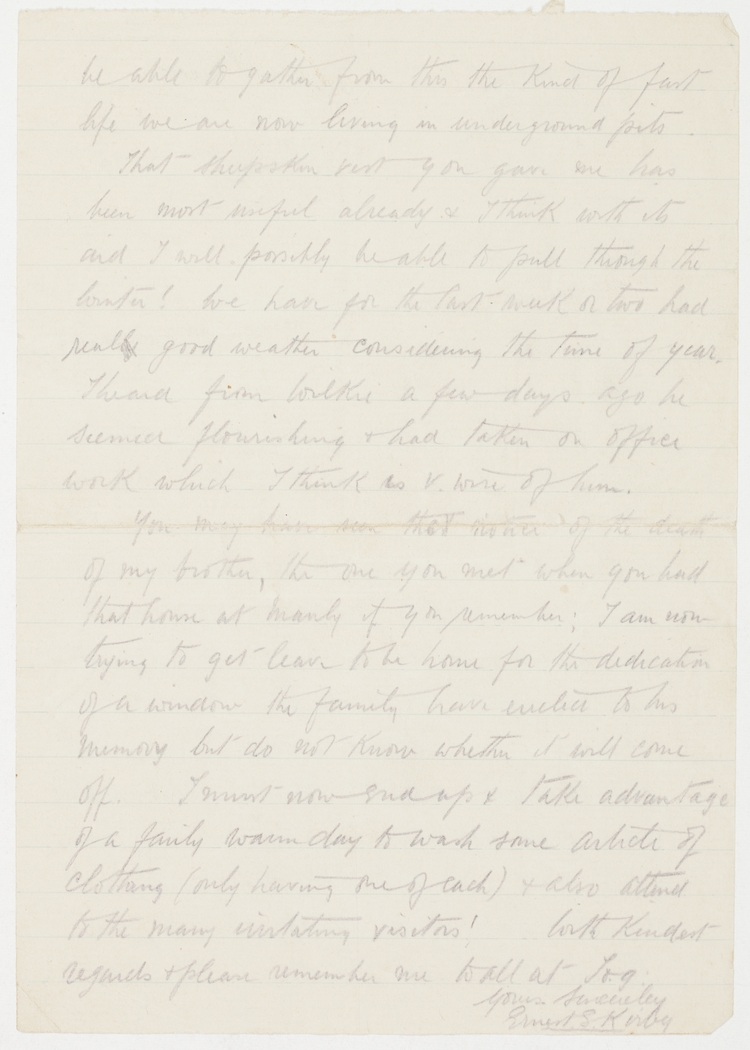 be able to gather from this the kind of fast
life we are now living in underground pits.
That sheepskin vest you gave me has
been most useful already & I think with its
aid I will possibly be able to pull through the
winter! We have for the last week or two had
really good weather considering the time of year.
I heard from Wilkie a few days ago he
seemed flourishing & had taken on office
work which I think is v. wise of him.
You may have seen the notice of the death
of my brother, the one you met when you had
that house at Manly if you remember; I am now
trying to get leave to be home for the dedication
of a window the family have erected to his
memory but do not know whether it will come
off. I must now end up & take advantage
of a fairly warm day to wash some article of
clothing (only having one of each) & also attend
to the many irritating visitors! With kindest
regards & please remember me to all at
Yours sincerely
Ernest S. Kirby